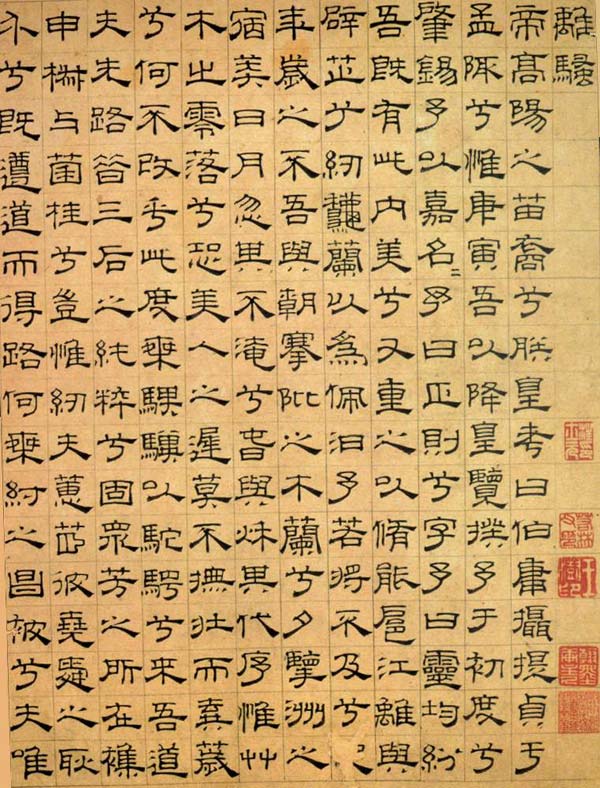 離騷
帝高陽之苗裔兮朕皇考曰伯庸攝提貞于
孟陬兮惟庚寅吾以降皇覽揆予于初度兮
肇錫予以嘉名〻予曰正則兮字予曰靈均紛
吾既有此内美兮又重之以脩能扈江離與
辟芷兮紉龝蘭以為佩汨予若將不及兮
年歲之不吾與朝搴阰之木蘭兮夕擥洲之
宿莽日月忽其不淹兮春與秋其代序惟艸
木之零落兮恐美人之遲莫不撫壯而棄薉
兮何不改乎此度乘騏驥以駝騁兮來吾道
夫先路昔三后之純粹兮固眾芳之所在襍
申椒与菌桂兮豈惟紉夫蕙茝彼堯舜之耿
介兮既遵道而得路何桀紂之昌被兮夫唯